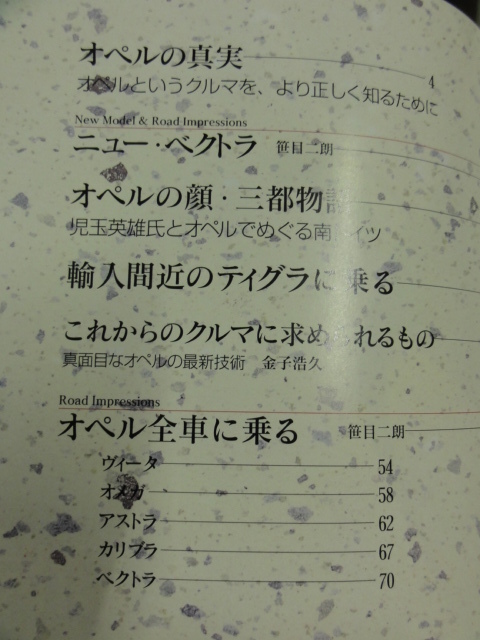 オペルの真実 4
オペルというクルマを、より正しく知るために
New Model & Road Impressions
ニュー・ベクトラ 笹目二朗
オペルの顔・三都物語
児玉英雄氏とオペルでめぐる南ドイツ
輸入間近のティグラに乗る
これからのクルマに求められるもの
真面目なオペルの最新技術 金子浩久
Road Impressions
オペル全車に乗る 笹目二朗
ヴィータ 54
オメガ 58
アストラ 62
カリブラ 67
ベクトラ 70